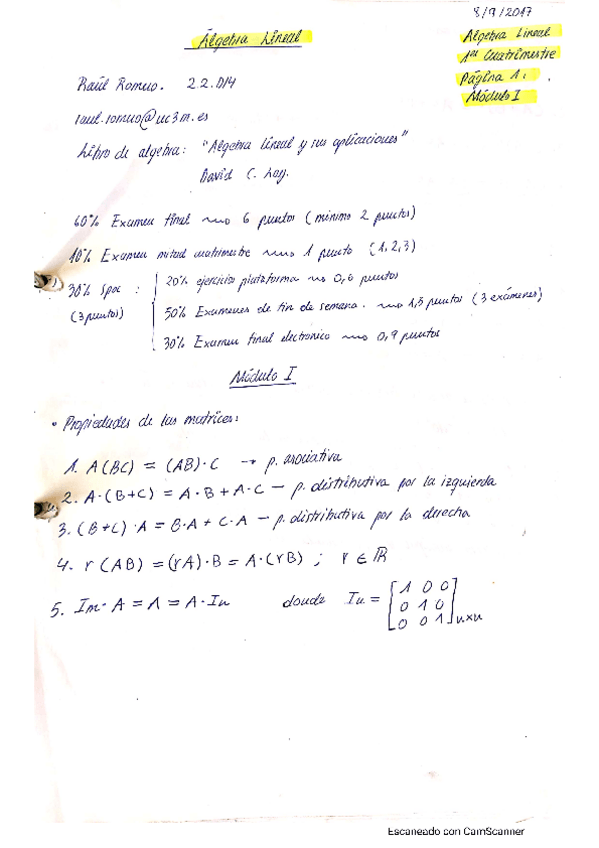 8/9/2017
Álgebra Lineal
Álgebra Lineal
1er Cuatrimestre
Página 1:
Módulo I
Raúl Romero. 2.2.D14
raul.romero@uc3m.es
Libro de algebra: "Álgebra lineal y sus aplicaciones"
David C. Lay.
60% Examen final ⟿ 6 puntos (mínimo 2 puntos)
10% Examen mitad cuatrimestre ⟿ 1 punto (1,2,3)
30% Spoc :
(3 puntos)
20% ejercicios plataforma ⟿ 0,6 puntos
50% Examenes de fin de semana. ⟿ 1,5 puntos (3 exámenes)
30% Examen final electrónico ⟿ 0,9 puntos
Módulo I
• Propiedades de las matrices:
1. A(BC) = (AB)·C → p. asociativa
2. A·(B+C) = A·B + A·C – p. distributiva por la izquierda
3. (B+C)·A = B·A + C·A – p. distributiva por la derecha
4. r(AB) = (rA)·B = A·(rB) ; r ∈ ℝ
5. Im·A = A = A·In donde In = [1 0 0
0 1 0
0 0 1]nxn
Escaneado con CamScanner